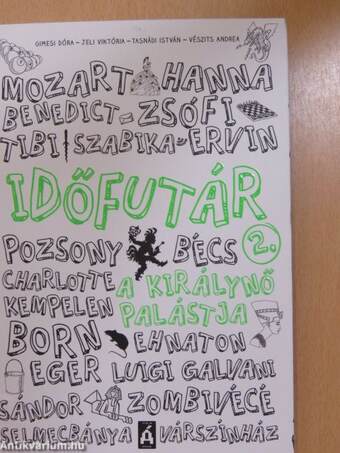 GIMESI DÓRA – JELI VIKTÓRIA – TASNÁDI ISTVÁN – VÉSZITS ANDREA
MOZART HANNA
BENEDICT ZSÓFI
TIBI SZABIKA ERVIN
IDŐFUTÁR
POZSONY BÉCS 2.
CHARLOTTE A KIRÁLYNŐ
KEMPELEN PALÁSTJA
BORN EHNATON
EGER LUIGI GALVANI
SÁNDOR ZOMBIVÉCÉ
SELMECBÁNYA VÁRSZÍNHÁZ
Antikvarium.hu